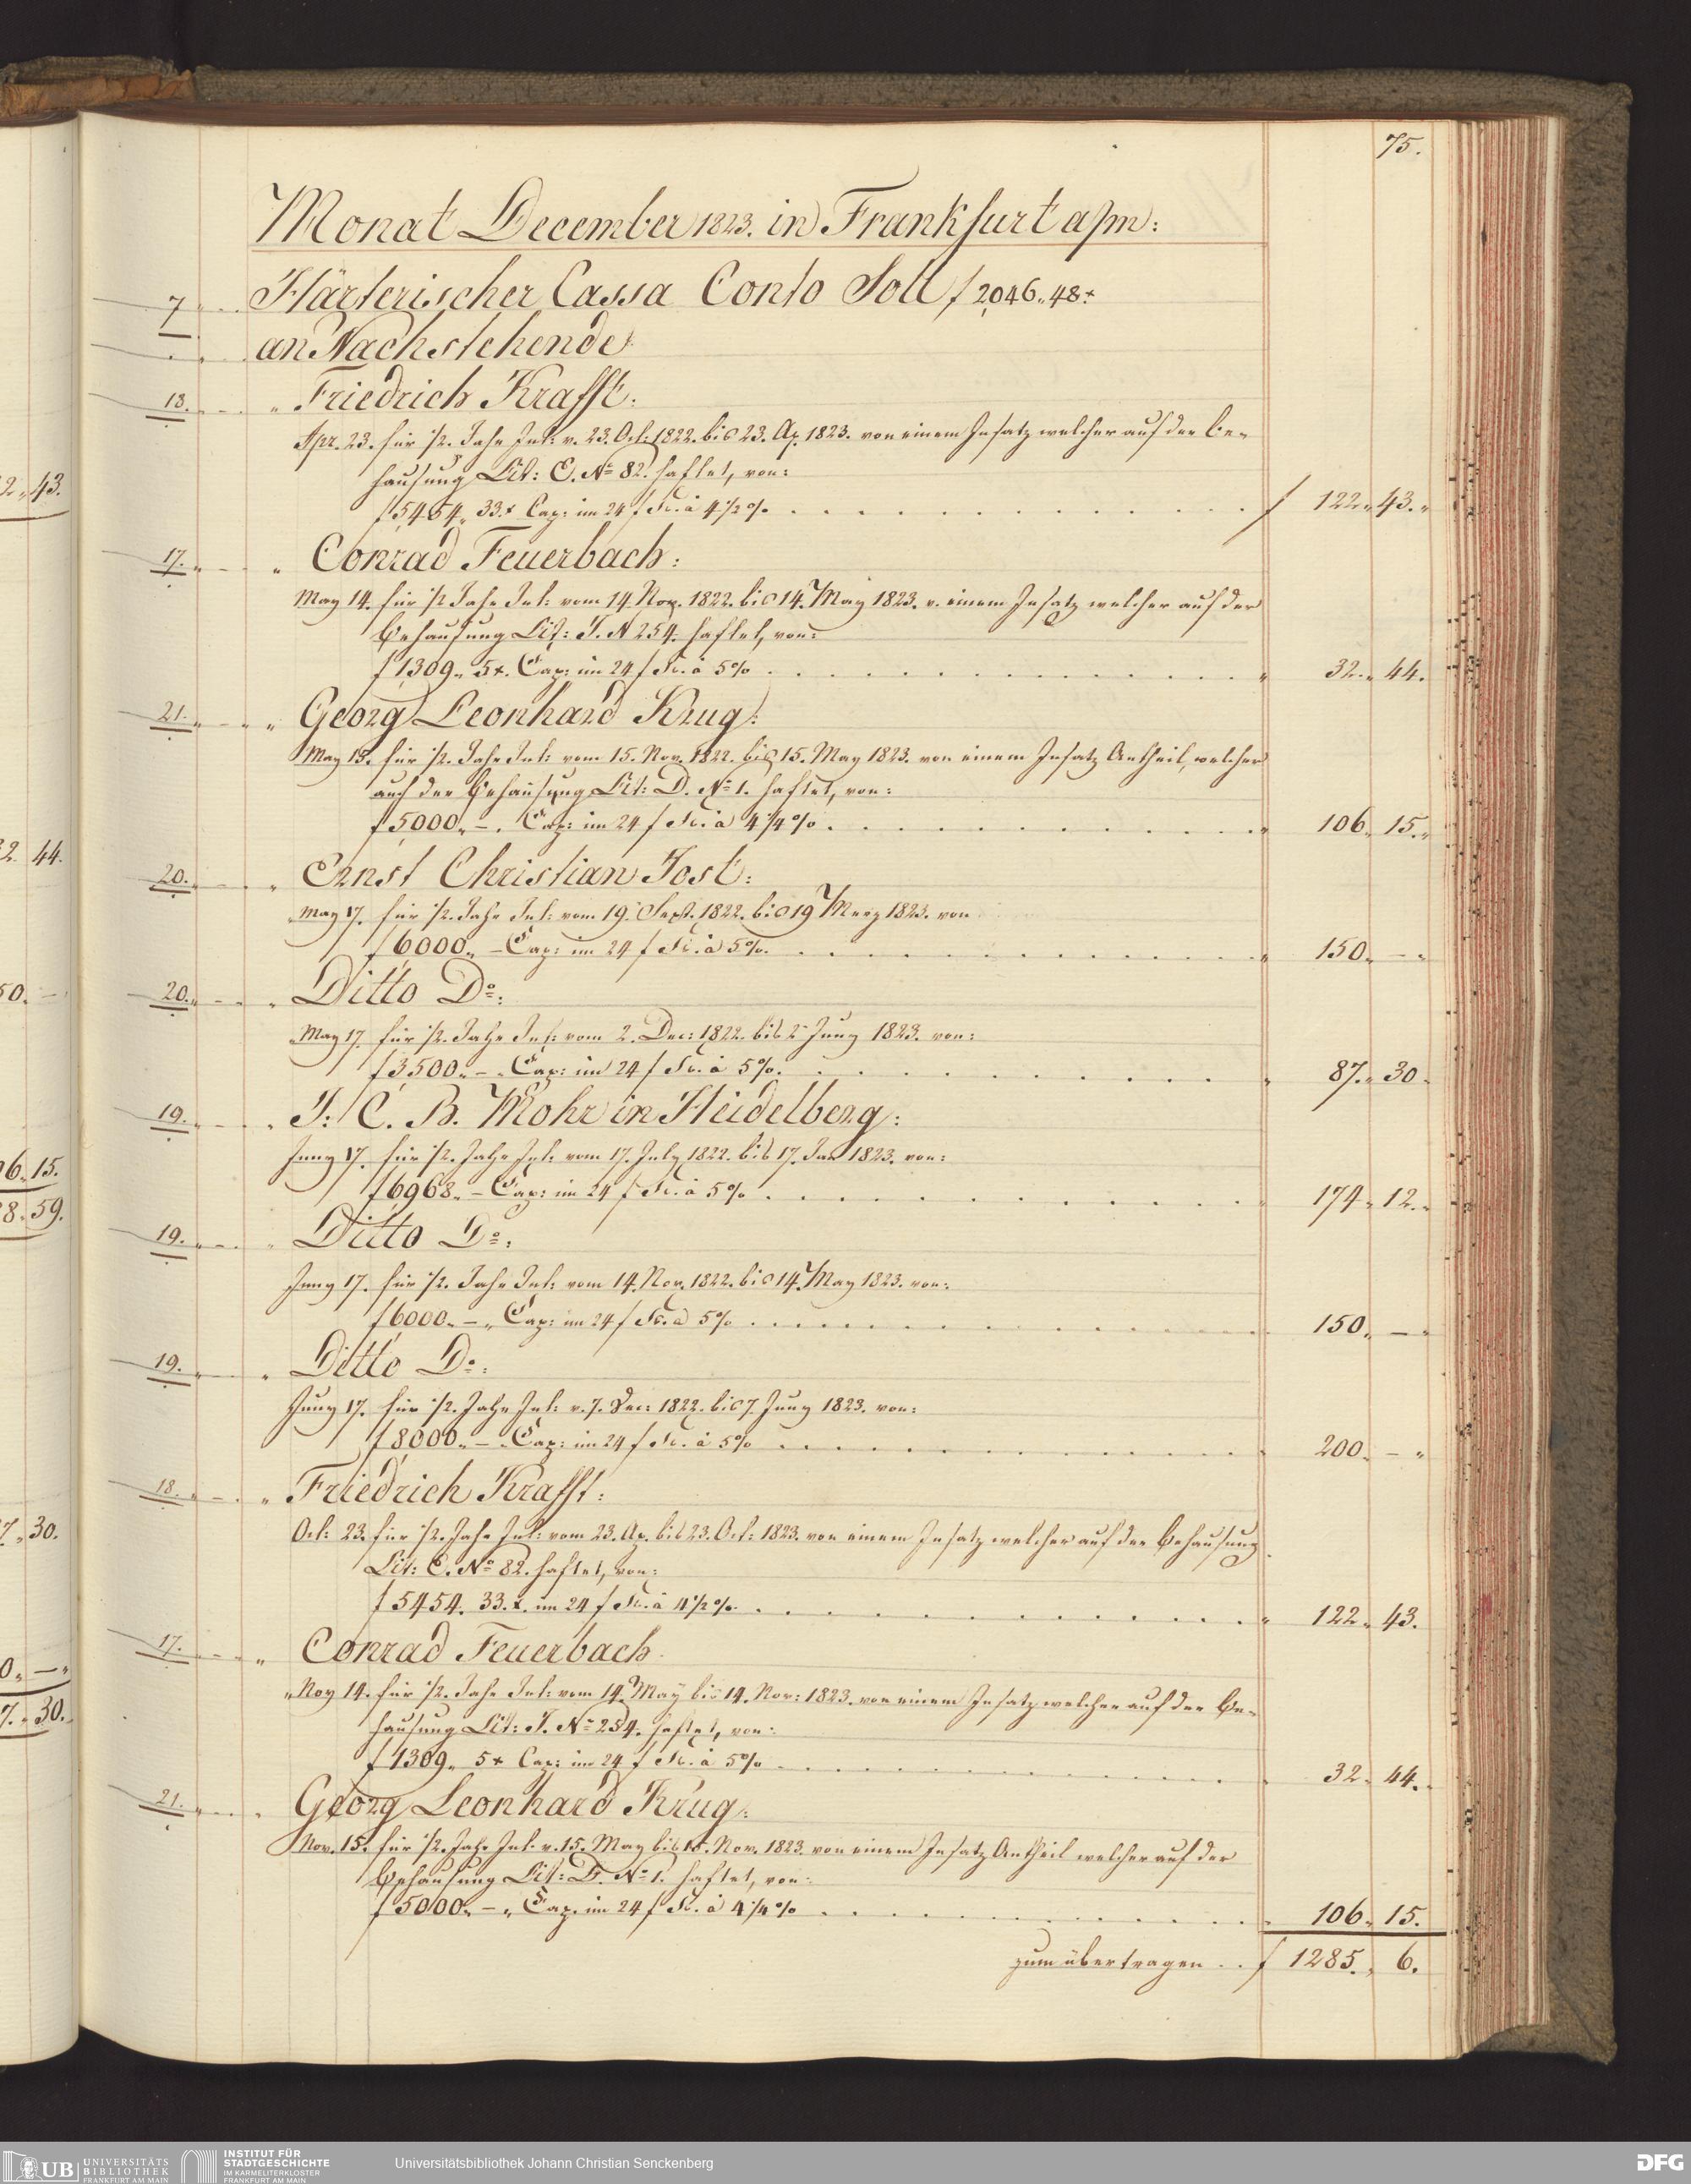 75.
Monat December 1823. in Frankfurt a/m:
7 Härterischer Cassa Conto Soll f 2,046.. 48.x
an Nachstehende
18. " Friedrich Krafft:
Apr. 23. für 1/2. Jahr Int: v. 23. Oct: 1822. bis 23. Ap. 1823. von einem Insatz welcher auf der Be-
hausung Lit: E. No 82. haftet, von:
f 5454. 33.x Cap: im 24 f Fs. à 4 1/2 % f 122. 43.
17. " Conrad Feuerbach:
May 14. für 1/2 Jahr Int: vom 14. Nov. 1822. bis 14. May 1823. v. einem Insatz welcher auf der
Behausung Lit: J. N 254. haftet, von:
f 1309. 5x. Cap: im 24 f Fs. à 5% " 32. 44.
21. " Georg Leonhard Krug:
May 15. für 1/2. Jahr Int: vom 15. Nov. 1822. bis 15. May 1823. von einem Insatz Antheil, welcher
auf der Behausung Lit: D. No 1. haftet, von:
f 5000. – . Cap: im 24 f Fs. à 4 1/4 % " 106. 15.
20. " Ernst Christian Jost:
May 17. für 1/2. Jahr Int: vom 19. Sept. 1822. bis 19 Merz 1823. von
f 6000. – Cap: im 24 f Fs. à 5%. " 150. –
20. " Ditto Do:
May 17. für 1/2. Jahr Int: vom 2. Dec: 1822. bis 2 Juny 1823. von:
f 3500. – Cap: im 24 f Fs. à 5%. " 87. 30
19. " J: C. B. Mohr in Heidelberg:
Juny 17. für 1/2. Jahr Int: vom 17. July 1822. bis 17. Jan 1823. von:
f 6968. – Cap: im 24 f Fs. à 5% " 174. 12.
19. " Ditto Do:
Juny 17. für 1/2. Jahr Int: vom 14. Nov. 1822. bis 14. May 1823. von:
f 6000. – " Cap: im 24 f Fs. à 5% 150. –
19. " Ditto Do:
Juny 17. für 1/2. Jahr Int: v. 7. Dec: 1822. bis 7. Juny 1823. von:
f 8000. – Cap: im 24 f Fs. à 5% 200. –
18. " Friedrich Krafft:
Oct: 23. für 1/2. Jahr Int: vom 23. Ap. bis 23. Oct: 1823. von einem Insatz welcher auf der Behausung
Lit: E. No 82. haftet, von:
f 5454. 33.x. im 24 f Fs. à 4 1/2 %. " 122. 43.
17. " Conrad Feuerbach
Nov 14. für 1/2. Jahr Int: vom 14. May bis 14. Nov: 1823. von einem Insatz welcher auf der Be-
hausung Lit: J. No 254. haftet, von:
f 1309. 5x Cap: im 24 f Fs. à 5% 32. 44.
21. " Georg Leonhard Krug:
Nov. 15. für 1/2. Jahr Int. v. 15. May bis 15. Nov. 1823. von einem Insatz Antheil welcher auf der
Behausung Lit: D. No 1. haftet, von:
f 5000. – " Cap. im 24 f Fs. à 4 1/4 % 106. 15.
zum übertragen . . f 1285. 6.
2. 43.
2. 44.
50. –
6. 15.
8. 59.
7. 30.
0. –
7. 30.
UB UNIVERSITÄTS
BIBLIOTHEK
FRANKFURT AM MAIN
INSTITUT FÜR
STADTGESCHICHTE
IM KARMELITERKLOSTER
FRANKFURT AM MAIN
Universitätsbibliothek Johann Christian Senckenberg
DFG